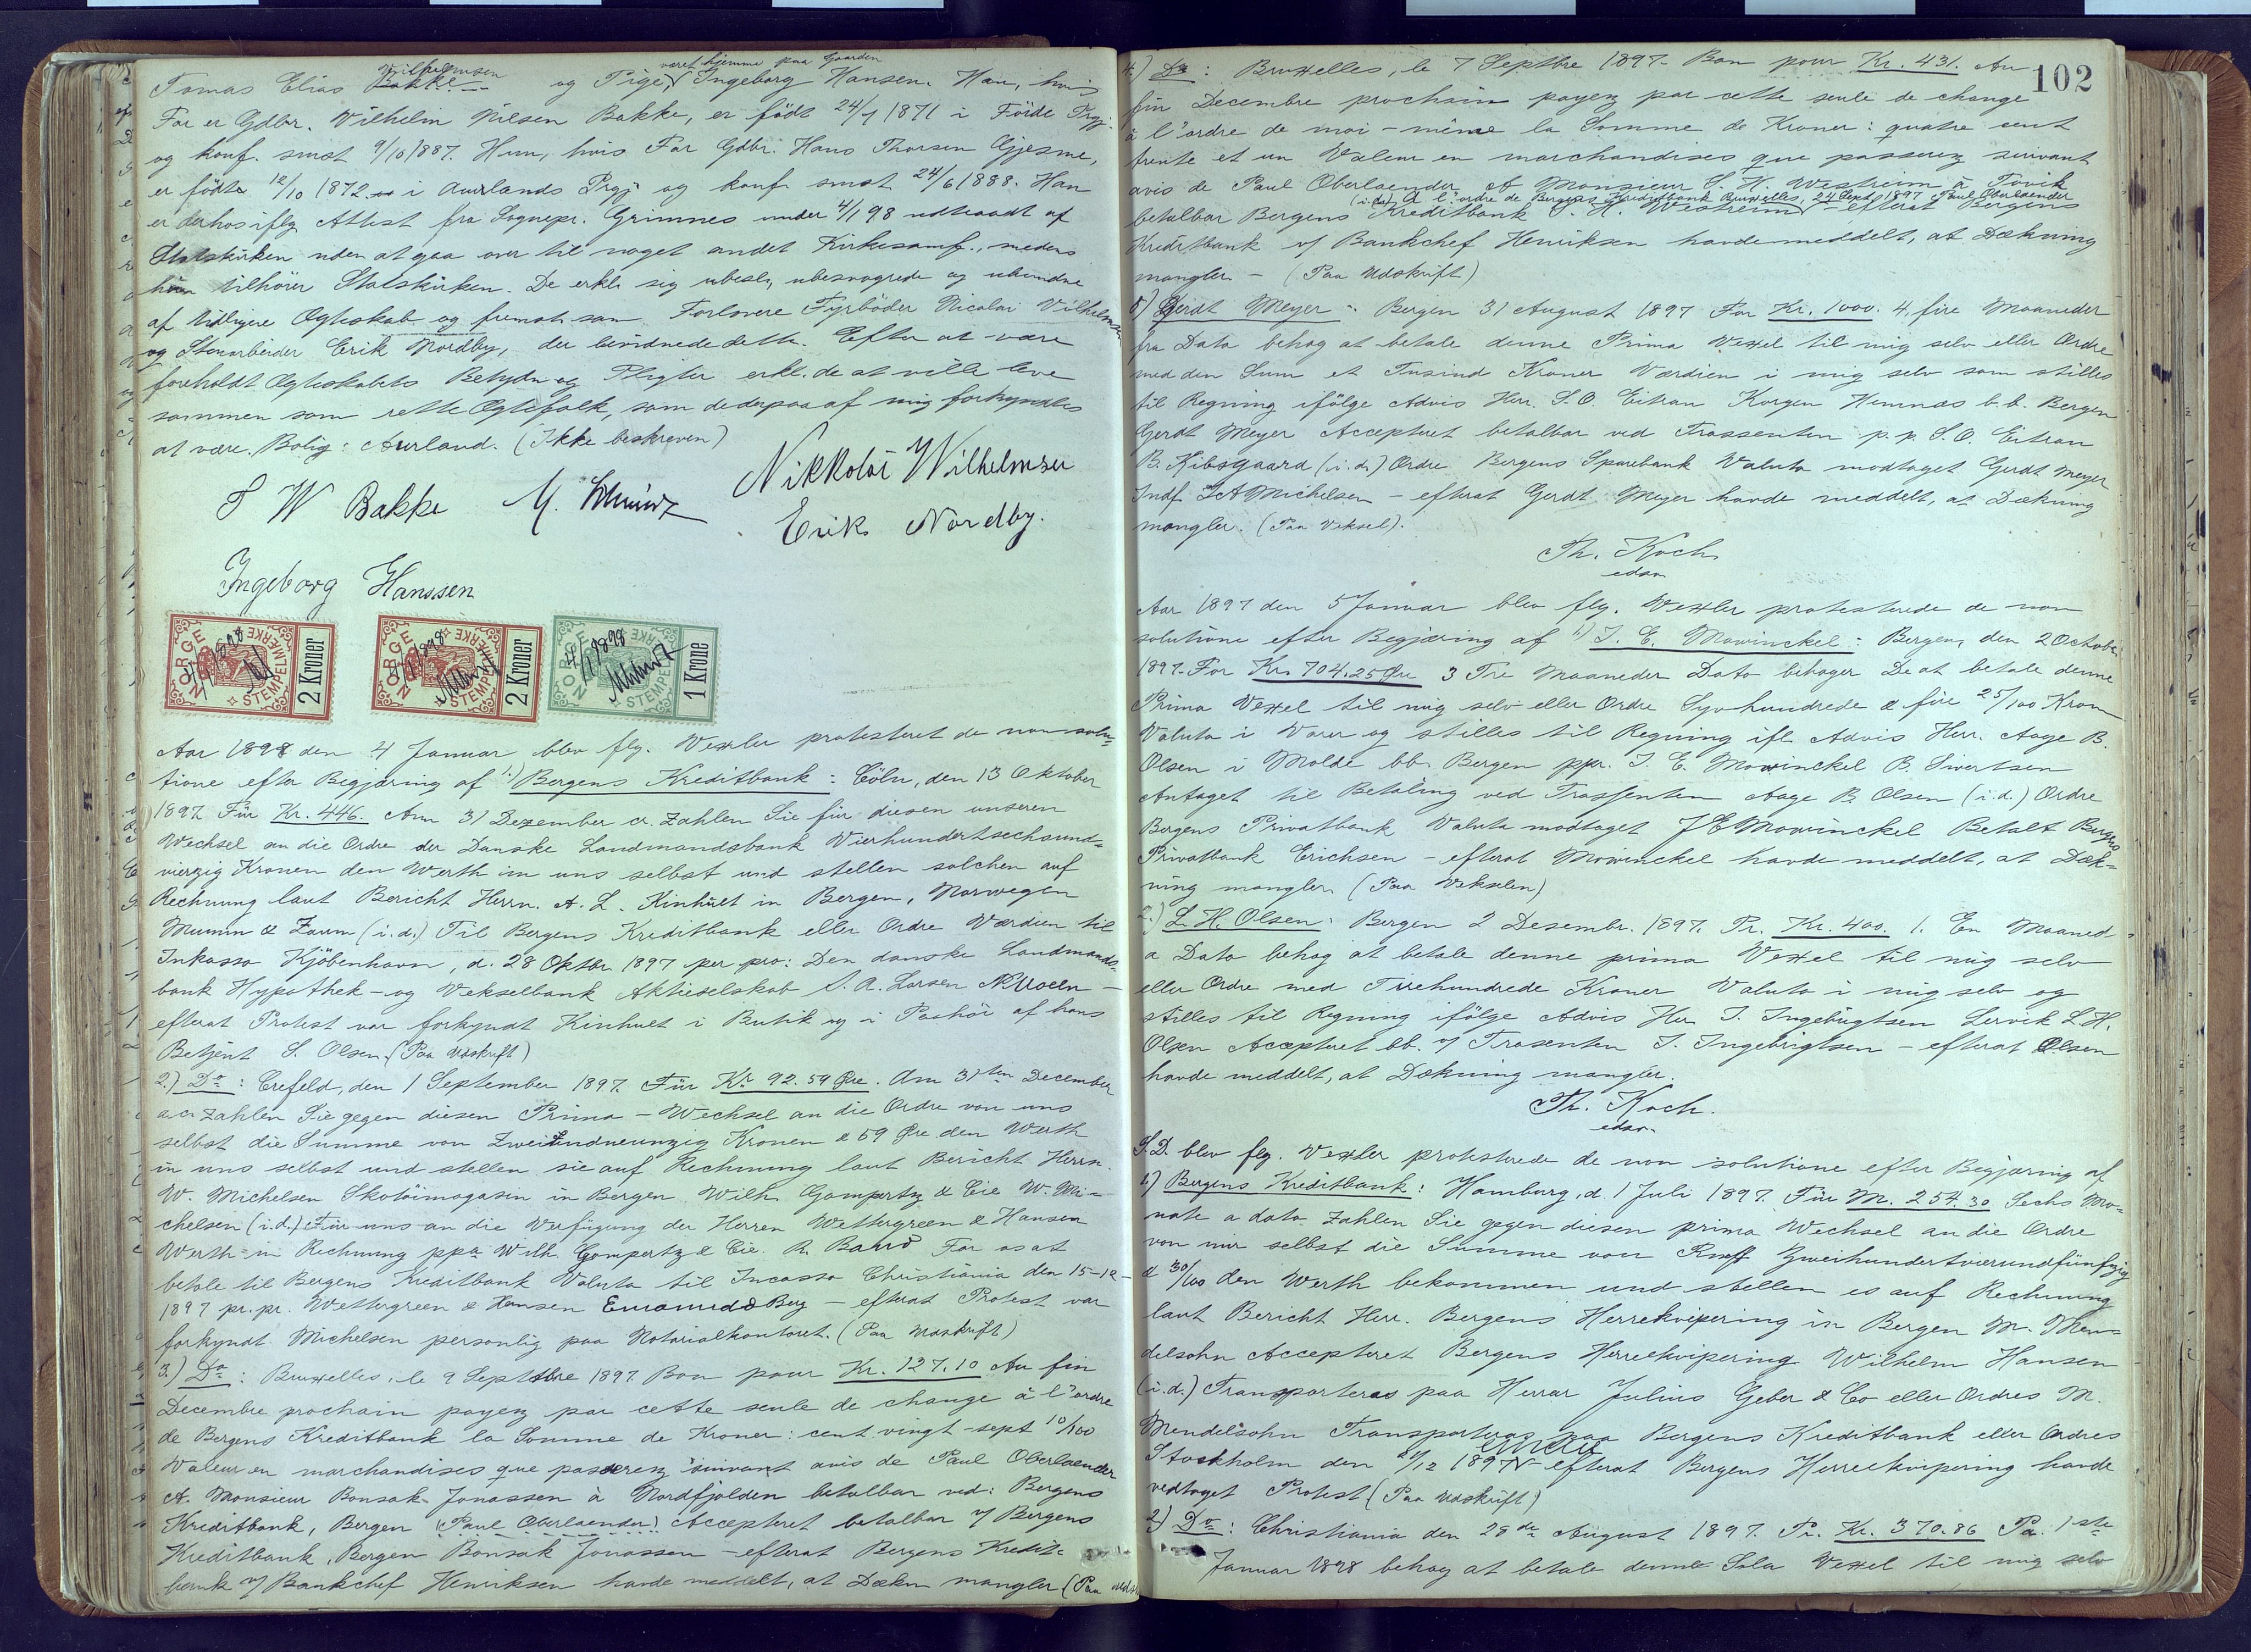 Tomas Elias Vilhelmsen Bakke og Pige, været hjemme paa Gaarden Ingeborg Hansen. Han, hvis
Far er Gdbr. Vilhelm Nilsen Bakke, er födt 24/7 1871 i Förde Prgj.
og konf. smst 9/10 1887. Hun, hvis Far Gdbr. Hans Thorsen Gjesme,
er födt 12/10 1872 i Aurlands Prgj og konf. smst 24/6 1888. Han
er derhos iflg Attest fra Sognepr. Grimnes under 4/1 98 udtraadt af
Statskirken uden at gaa over til noget andet Kirkesamf., medens
hun tilhörer Statskirken. De erkl. sig ubesl., ubesvogrede og ubundne
af tidligere Ægteskab og fremst. som Forlovere Fyrböder Nicolai Vilhelmsen
og Stenarbeider Erik Nordby, der bevidnede dette. Efter at være
foreholdt Ægteskabets Betydn. og Pligter erkl. de at ville leve
sammen som rette Ægtefolk, som de derpaa af mig forkyndtes
at være. Bolig: Aurland. (Ikke beskreven)
T W Bakke M. Schwartz Nikkolai Wilhelmsen
Erik Nordby.
Ingeborg Hanssen
NORGE STEMPELMERKE 2 Kroner
NORGE STEMPELMERKE 2 Kroner
NORGE STEMPELMERKE 1 Krone
Aar 1898 den 4 Januar blev flg. Vexler protesteret de non solu-
tione efter Begjæring af 1.) Bergens Kreditbank: Cöln, den 13 Oktober
1897. Für Kr. 446. Am 31 Dezember cr. zahlen Sie für diesen unseren
Wechsel an die Ordre der Danske Landmandsbank Vierhundertsechsund-
vierzig Kronen den Werth in uns selbst und stellen solchen auf
Rechnung laut Bericht Herrn. A. L. Kinhult in Bergen, Norwegen
Mumm & Zaum (i.d.) Til Bergens Kreditbank eller Ordre Værdien til
Inkasso Kjöbenhavn, d. 28 Oktbr. 1897 per pro: Den danske Landmands-
bank Hypothek- og Vekselbank Aktieselskab S. A. Larsen –
efterat Protest var forkyndt Kinhult i Butik og i Paahör af hans
Betjent S. Olsen. (Paa Udskrift)
2.) Do: Crefeld, den 1 September 1897. Für Kr 92.59 Øre. Am 31ten December
a.cr. zahlen Sie gegen diesen Prima-Wechsel an die Ordre von uns
selbst die Summe von Zweiundneunzig Kronen & 59 Øre den Werth
in uns selbst und stellen sie auf Rechnung laut Bericht Herrn.
W. Michelsen Skotöimagasin in Bergen Wilh. Gompertz & Cie W. Mi-
chelsen (i.d.) Für uns an die Verfügung der Herren Wettergreen & Hansen
Werth in Rechnung ppa Wilh. Gompertz & Cie. R. For os at
betale til Bergens Kreditbank Valuta til Incasso Christiania den 15-12-
1897 pr. pr. Wettergreen & Hansen Berg – efterat Protest var
forkyndt Michelsen personlig paa Notarialkontoret. (Paa Udskrift)
3.) Do: Bruxelles, le 9 Septbre 1897. Bon pour Kr. 127.10 Au fin
Decembre prochain payez par cette seule de change à l'ordre
de Bergens Kreditbank la Somme de Kroner: cent vingt-sept 10/100
Valeur en marchandises que passerez suivant avis de Paul Oberlaender
A. Monsieur Bonsak Jonassen à Nordfjolden betalbar ved: Bergens
Kreditbank, Bergen (Paul Oberlaender) Accepteret betalbar v/ Bergens
Kreditbank, Bergen Bonsak Jonassen – efterat Bergens Kredit-
bank v/ Bankchef Henriksen havde meddelt, at Dækn. mangler (Paa
102
4.) Do: Bruxelles, le 7 Septbre 1897. Bon pour Kr. 431. Au
fin Decembre prochain payez par cette seule de change
à l'ordre de moi-même la Somme de Kroner: quatre cent
trente et un Valeur en marchandises que passerez suivant
avis de Paul Oberlaender A Monsieur S. H. Westreim à Tövik
(i.d.) A l'ordre de Bergens Kreditbank Bruxelles, 24 Sept 1897 Paul Oberlaender
betalbar Bergens Kreditbank S. H. Westreim – efterat Bergens
Kreditbank v/ Bankchef Henriksen havde meddelt, at Dækning
mangler – (Paa Udskrift)
5) Gerdt Meyer: Bergen 31 August 1897 For Kr. 1000. 4, fire Maaneder
fra Dato behag at betale denne Prima Vexel til mig selv eller Ordre
med den Sum et Tusind Kroner Værdien i mig selv som stilles
til Regning ifölge Advis Herr. S. O. Eitran Korgen Hemnæs b.b. Bergen
Gerdt Meyer Accepteret betalbar ved Trassenten p.p. S. O. Eitran
B. Kibsgaard (i.d.) Ordre Bergens Sparebank Valuta modtaget Gerdt Meyer
Indf. Michelsen – efterat Gerdt Meyer havde meddelt, at Dækning
mangler. (Paa Veksel).
Th. Koch
edsv.
Aar 1897 den 5 Januar blev flg. Vexler protesterede de non
solutione efter Begjæring af 1.) J. E. Mowinckel: Bergen, den 2 October
1897. For Kr. 704.25 Øre 3 Tre Maaneder Dato behager De at betale denne
Prima Vexel til mig selv eller Ordre Syvhundrede & fire 25/100 Kroner
Valuta i Varer og stilles til Regning ifl. Advis Herr. Aage B.
Olsen i Molde bb. Bergen ppr. J. E. Mowinckel B. Sivertsen
Antaget til Betaling ved Trassenten Aage B. Olsen (i.d.) Ordre
Bergens Privatbank Valuta modtaget J E Mowinckel Betalt Bergens
Privatbank Erichsen – efterat Mowinckel havde meddelt, at Dæk-
ning mangler (Paa Vekselen)
2.) L. H. Olsen: Bergen 2 Desembr. 1897. Pr. Kr. 400. 1. En Maaned
a Dato behag at betale denne prima Vexel til mig selv
eller Ordre med Firehundrede Kroner Valuta i mig selv og
stilles til Regning ifölge Advis Herr J. Ingebrigtsen Lervik L. H.
Olsen Accepteret bb. v/ Trasenten J. Ingebrigtsen – efterat Olsen
havde meddelt, at Dækning mangler.
Th. Koch.
edsv.
S. D. blev flg. Vexler protesterede de non solutione efter Begjæring af
1.) Bergens Kreditbank: Hamburg, d. 1 Juli 1897. Für M. 254.30 Sechs Mo-
nate a dato Zahlen Sie gegen diesen prima Wechsel an die Ordre
von mir selbst die Summe von Rmk Zweihundertvierundfünfzig
& 30/100 den Werth bekommen und stellen es auf Rechnung
laut Bericht Herr. Bergens Herrekvipering in Bergen M. Men-
delsohn Accepteret Bergens Herreekvipering Wilhelm Hansen
(i.d.) Transporteras paa Herrar Julius Geber & Co eller Ordres M.
Mendelsohn Transporteras paa Bergens Kreditbank eller Ordres
Stockholm den 21/12 1897 – efterat Bergens Herreekvipering havde
vedtaget Protest (Paa Udskrift)
2) Do: Christiania den 28de August 1897. Pr. Kr. 370.86 Pa. 1ste
Januar 1898 behag at betale denne Sola Vexel til mig selv